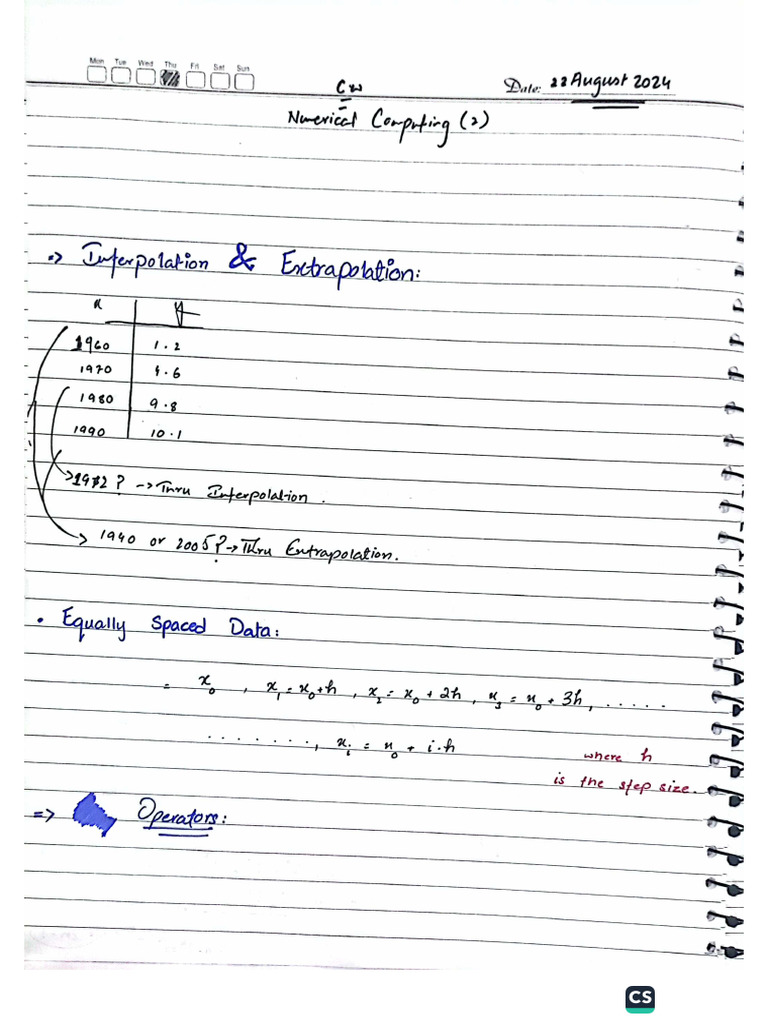 Mon Tue Wed Thu Fri Sat Sun
CW
Date: 22 August 2024
Numerical Computing (2)
=> Interpolation & Extrapolation:
x y
1960 1.2
1970 4.6
1980 9.8
1990 10.1
1982? -> Thru Interpolation.
1940 or 2005? -> Thru Extrapolation.
• Equally Spaced Data:
= x₀ , x₁ = x₀+h , x₂ = x₀ + 2h , x₃ = x₀ + 3h, .....
........, xᵢ = x₀ + i.h
where h
is the step size.
=> Operators:
CS